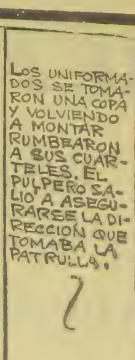 LOS UNIFORMA-
DOS SE TOMA-
RON UNA COPA
Y VOLVIENDO
A MONTAR
RUMBEARON
A SUS CUAR-
TELES. EL
PULPERO SA-
LIÓ A ASEGU-
RARSE LA DI-
RECCIÓN QUE
TOMABA LA
PATRULLA.